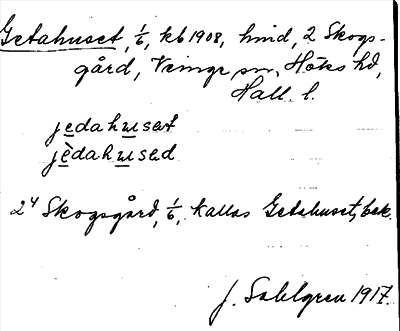 Getahuset, 1/6, kb 1908, hmd, 2 Skogs-
gård, Veinge sn, Höks hd,
Hall. l.
jedahuset
jèdahused
2⁴ Skogsgård, 1/6, kallas Getahuset, bek.
J. Sahlgren 1917.